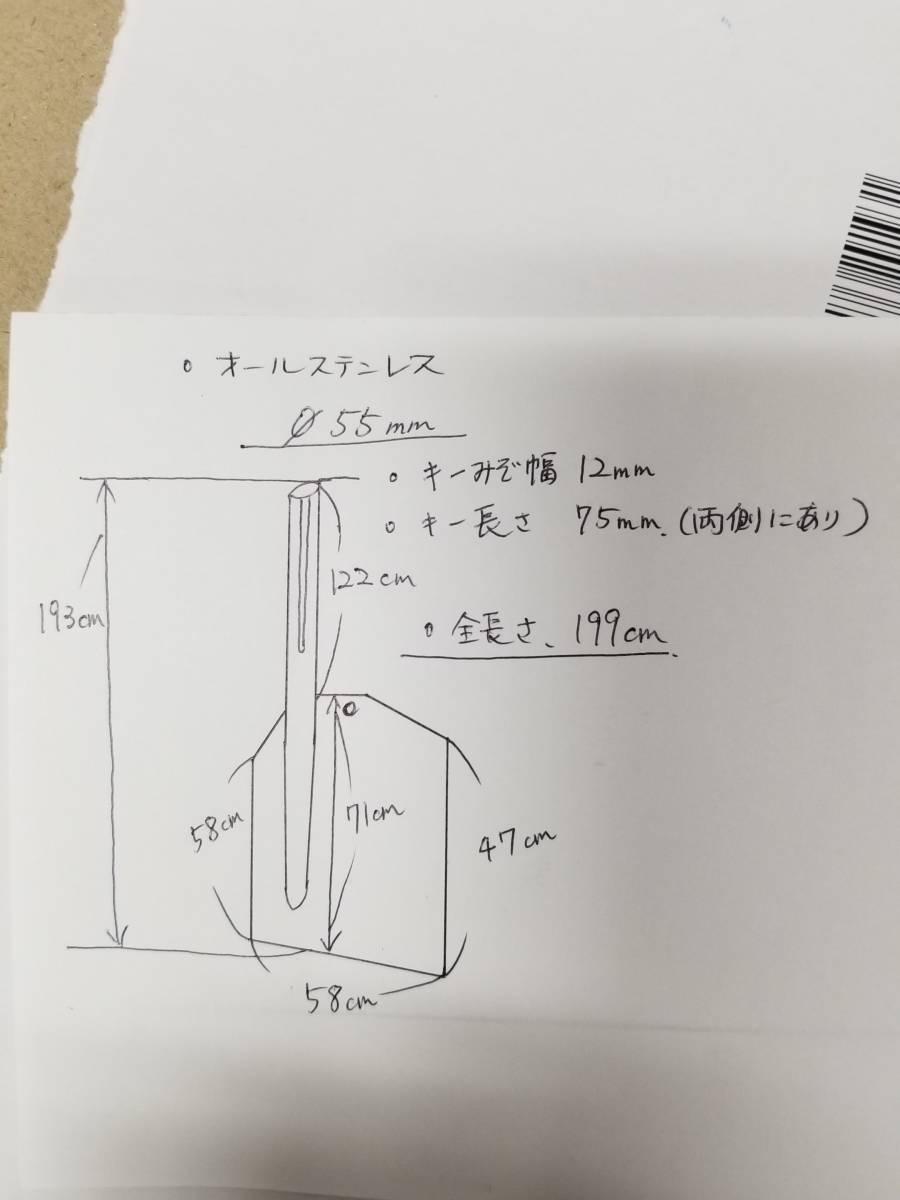 ○ オールステンレス
Ø 55mm
○ キーみぞ幅 12mm
○ キー長さ 75mm.(両側にあり)
122cm
193cm
○ 全長さ、199cm.
58cm
71cm
47cm
58cm